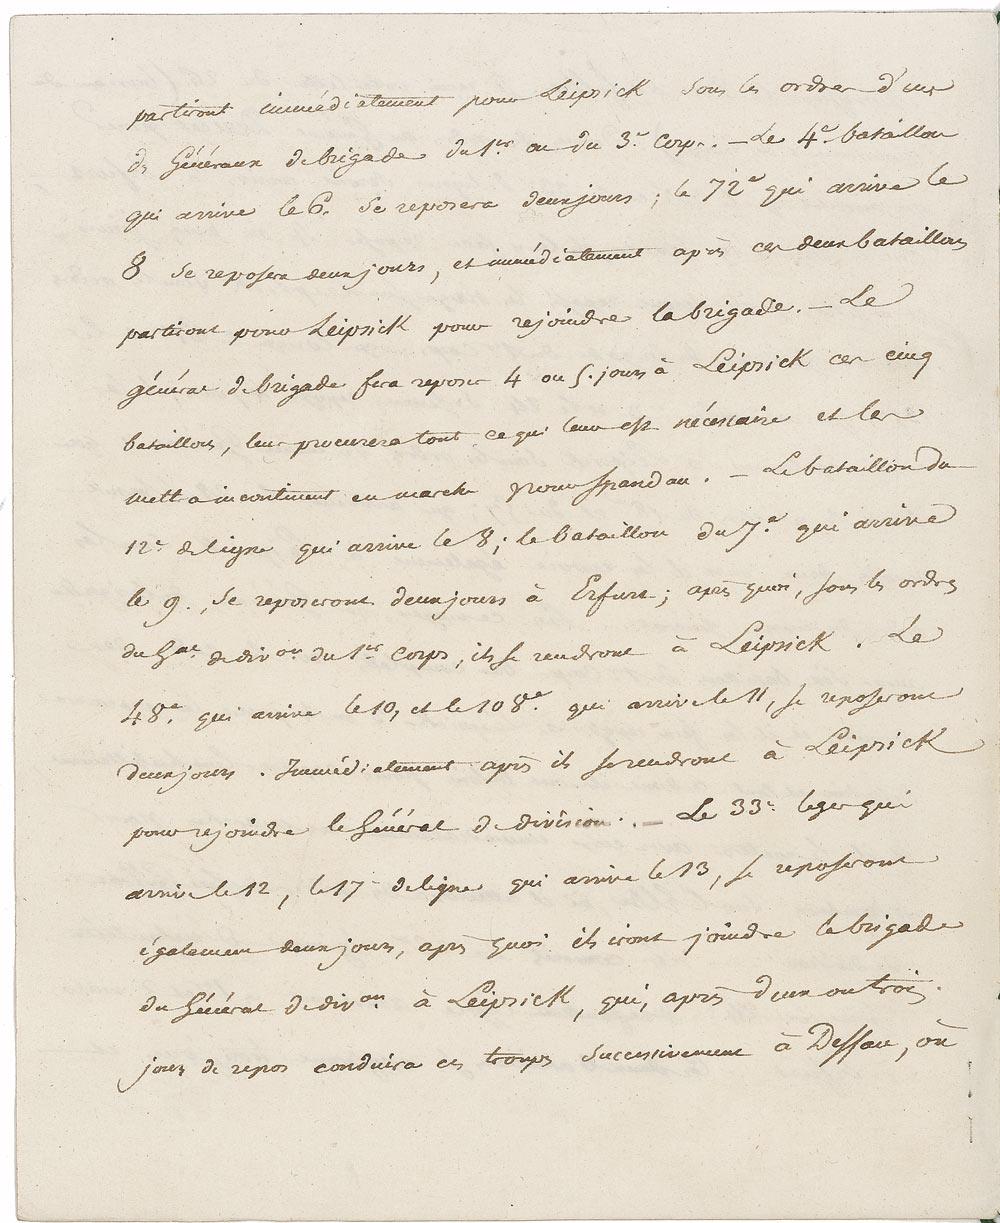 partiront immédiatement pour Leipsick sous les ordres d'un
des Généraux de brigade du 1er ou du 3e Corps. — Le 4e bataillon
qui arrive le 6. se reposera deux jours ; le 72e qui arrive le
8 se reposera deux jours, et immédiatement après ces deux bataillons
partiront pour Leipsick pour rejoindre la brigade. — Le
général de brigade fera reposer 4 ou 5. jours à Leipsick ces cinq
bataillons, leur procurera tout ce qui leur est nécessaire et les
mettra incontinent en marche pour Spandau. — Le bataillon du
12e de ligne qui arrive le 8 ; le bataillon du 7e qui arrive
le 9., se reposeront deux jours à Erfurt ; après quoi, sous les ordres
du Gal de divon du 1er Corps, ils se rendront à Leipsick. Le
48e qui arrive le 10, et le 108e qui arrive le 11, se reposeront
deux jours. Immédiatement après ils se rendront à Leipsick
pour rejoindre le Général de division. — Le 33e leger qui
arrive le 12, le 17e de ligne qui arrive le 13, se reposeront
également deux jours, après quoi ils iront joindre le brigade
du Général de divon à Leipsick, qui, après deux ou trois
jours de repos conduira ces troupes successivement à Dessau, où